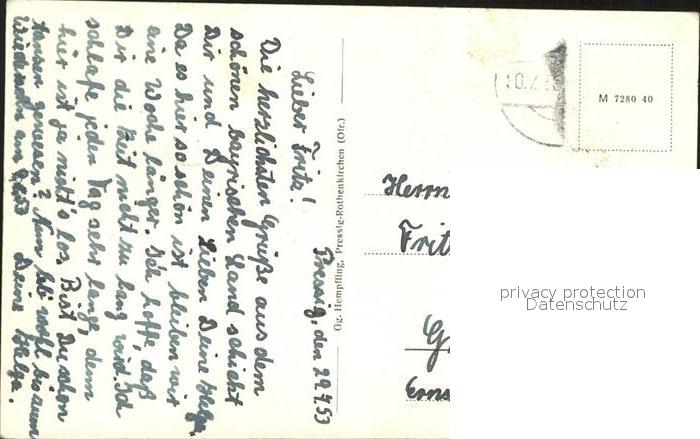 Pressig, den 29.7.53
Lieber Fritz!
Die herzlichsten Grüße aus dem
schönen bayrischen Land schickt
Dir und Deinen Lieben Deine Helga.
Da es hier so schön ist bleiben wir
eine Woche länger. Ich hoffe, daß
Dir die Zeit nicht zu lang wird. Ich
schlafe jeden Tag sehr lange, denn
hier ist ja nicht's los. Bist Du schon
gewesen? Nun leb wohl bis zum
Wiedersehn am
Deine Helga.
Gg. Hempfling, Pressig-Rothenkirchen (Ofr.)
M 7280 40
Herrn
Frit
G
Erns
privacy protection
Datenschutz